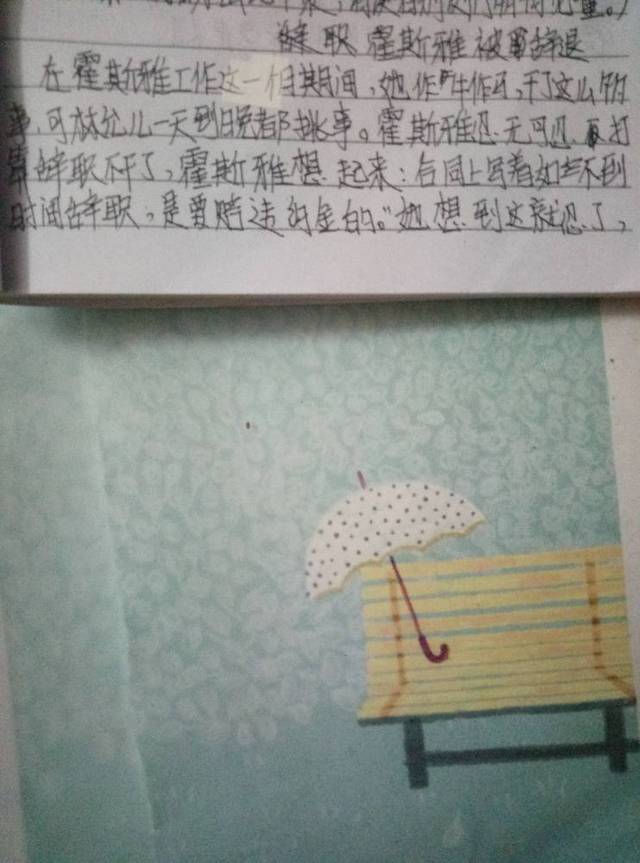 辞职 霍斯雅被辞退
在霍斯雅工作这一相期间,她作牛作马,干了这么多的
事,可林纷儿一天到晚都挑事。霍斯雅忍无可忍,打
算辞职不干了,霍斯雅想起来:合同上写着如约不到
时间辞职,是要赔违约金的。"她想到这就忍了,